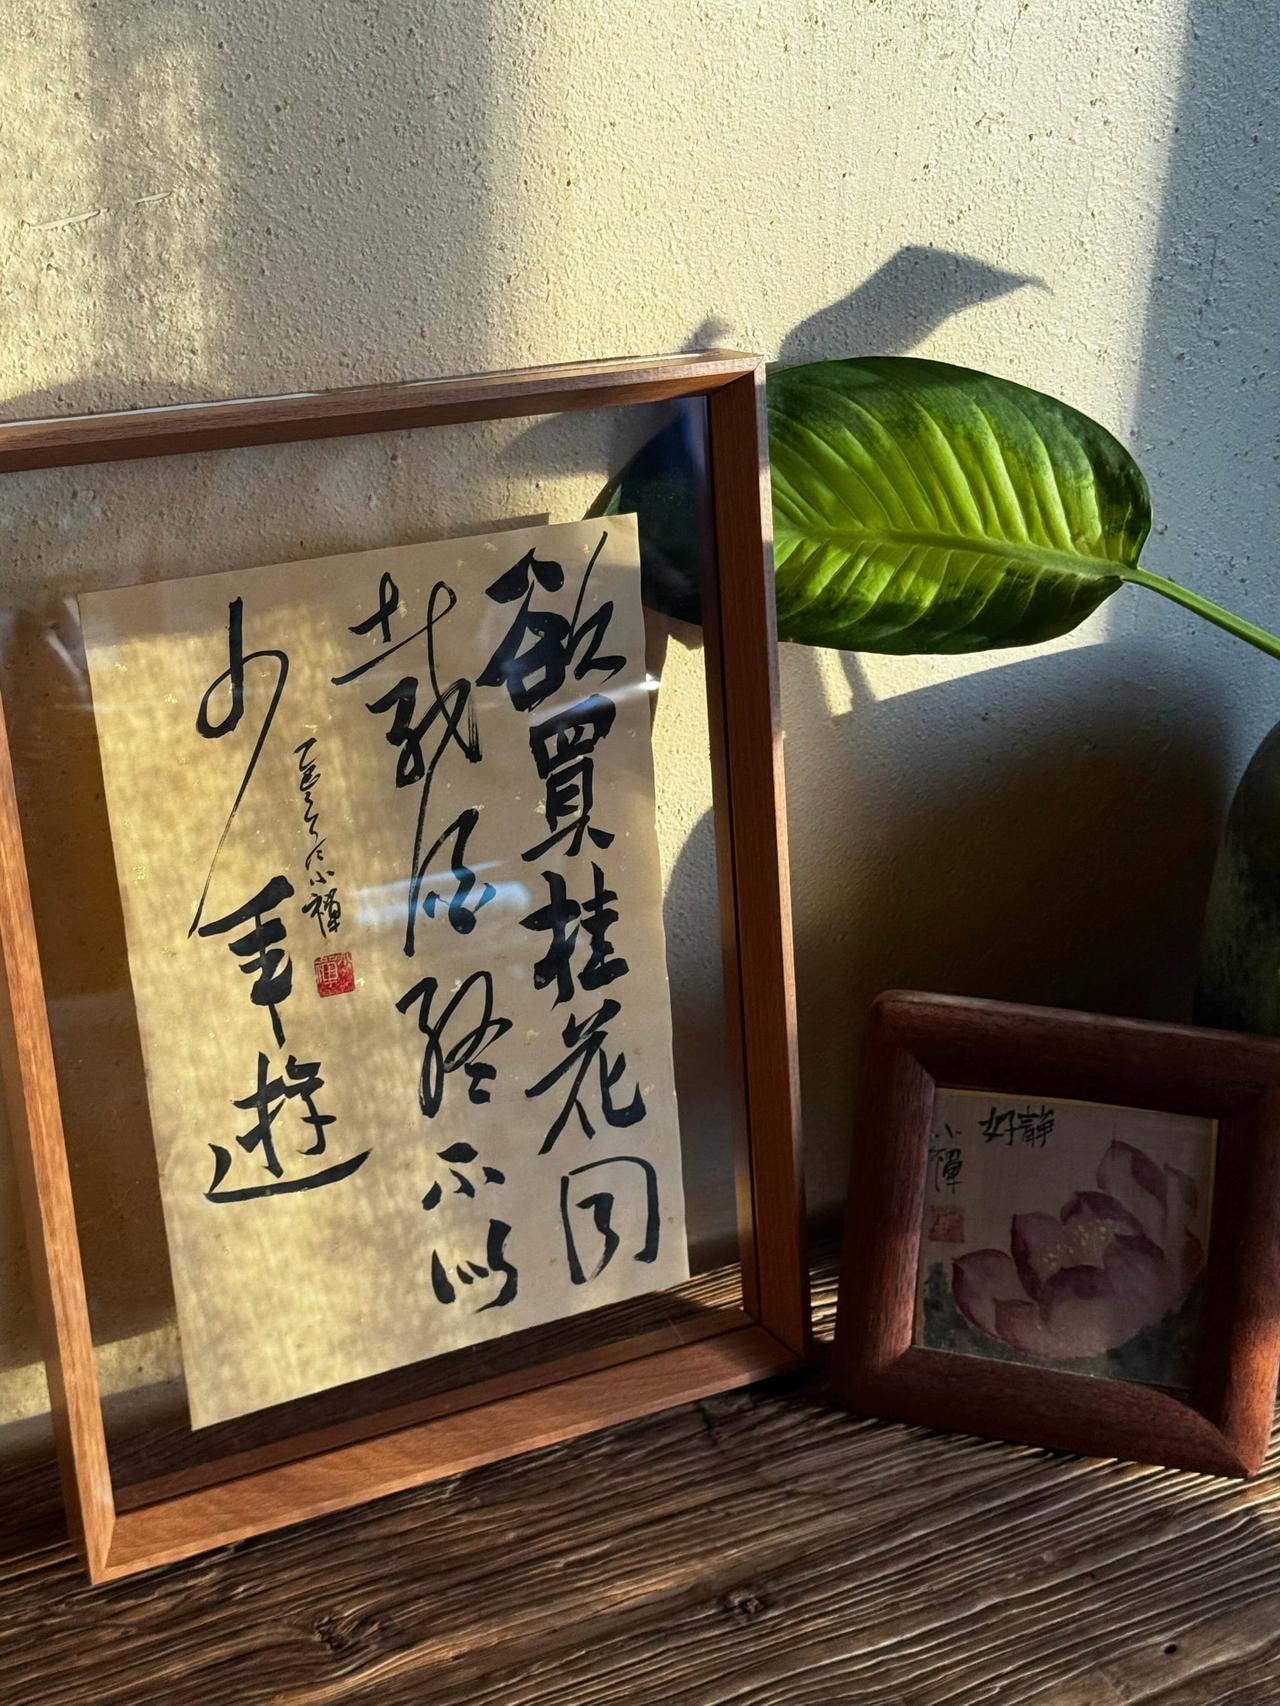 欲買桂花同
載酒終不似
少年遊
小禪
好靜
小禪